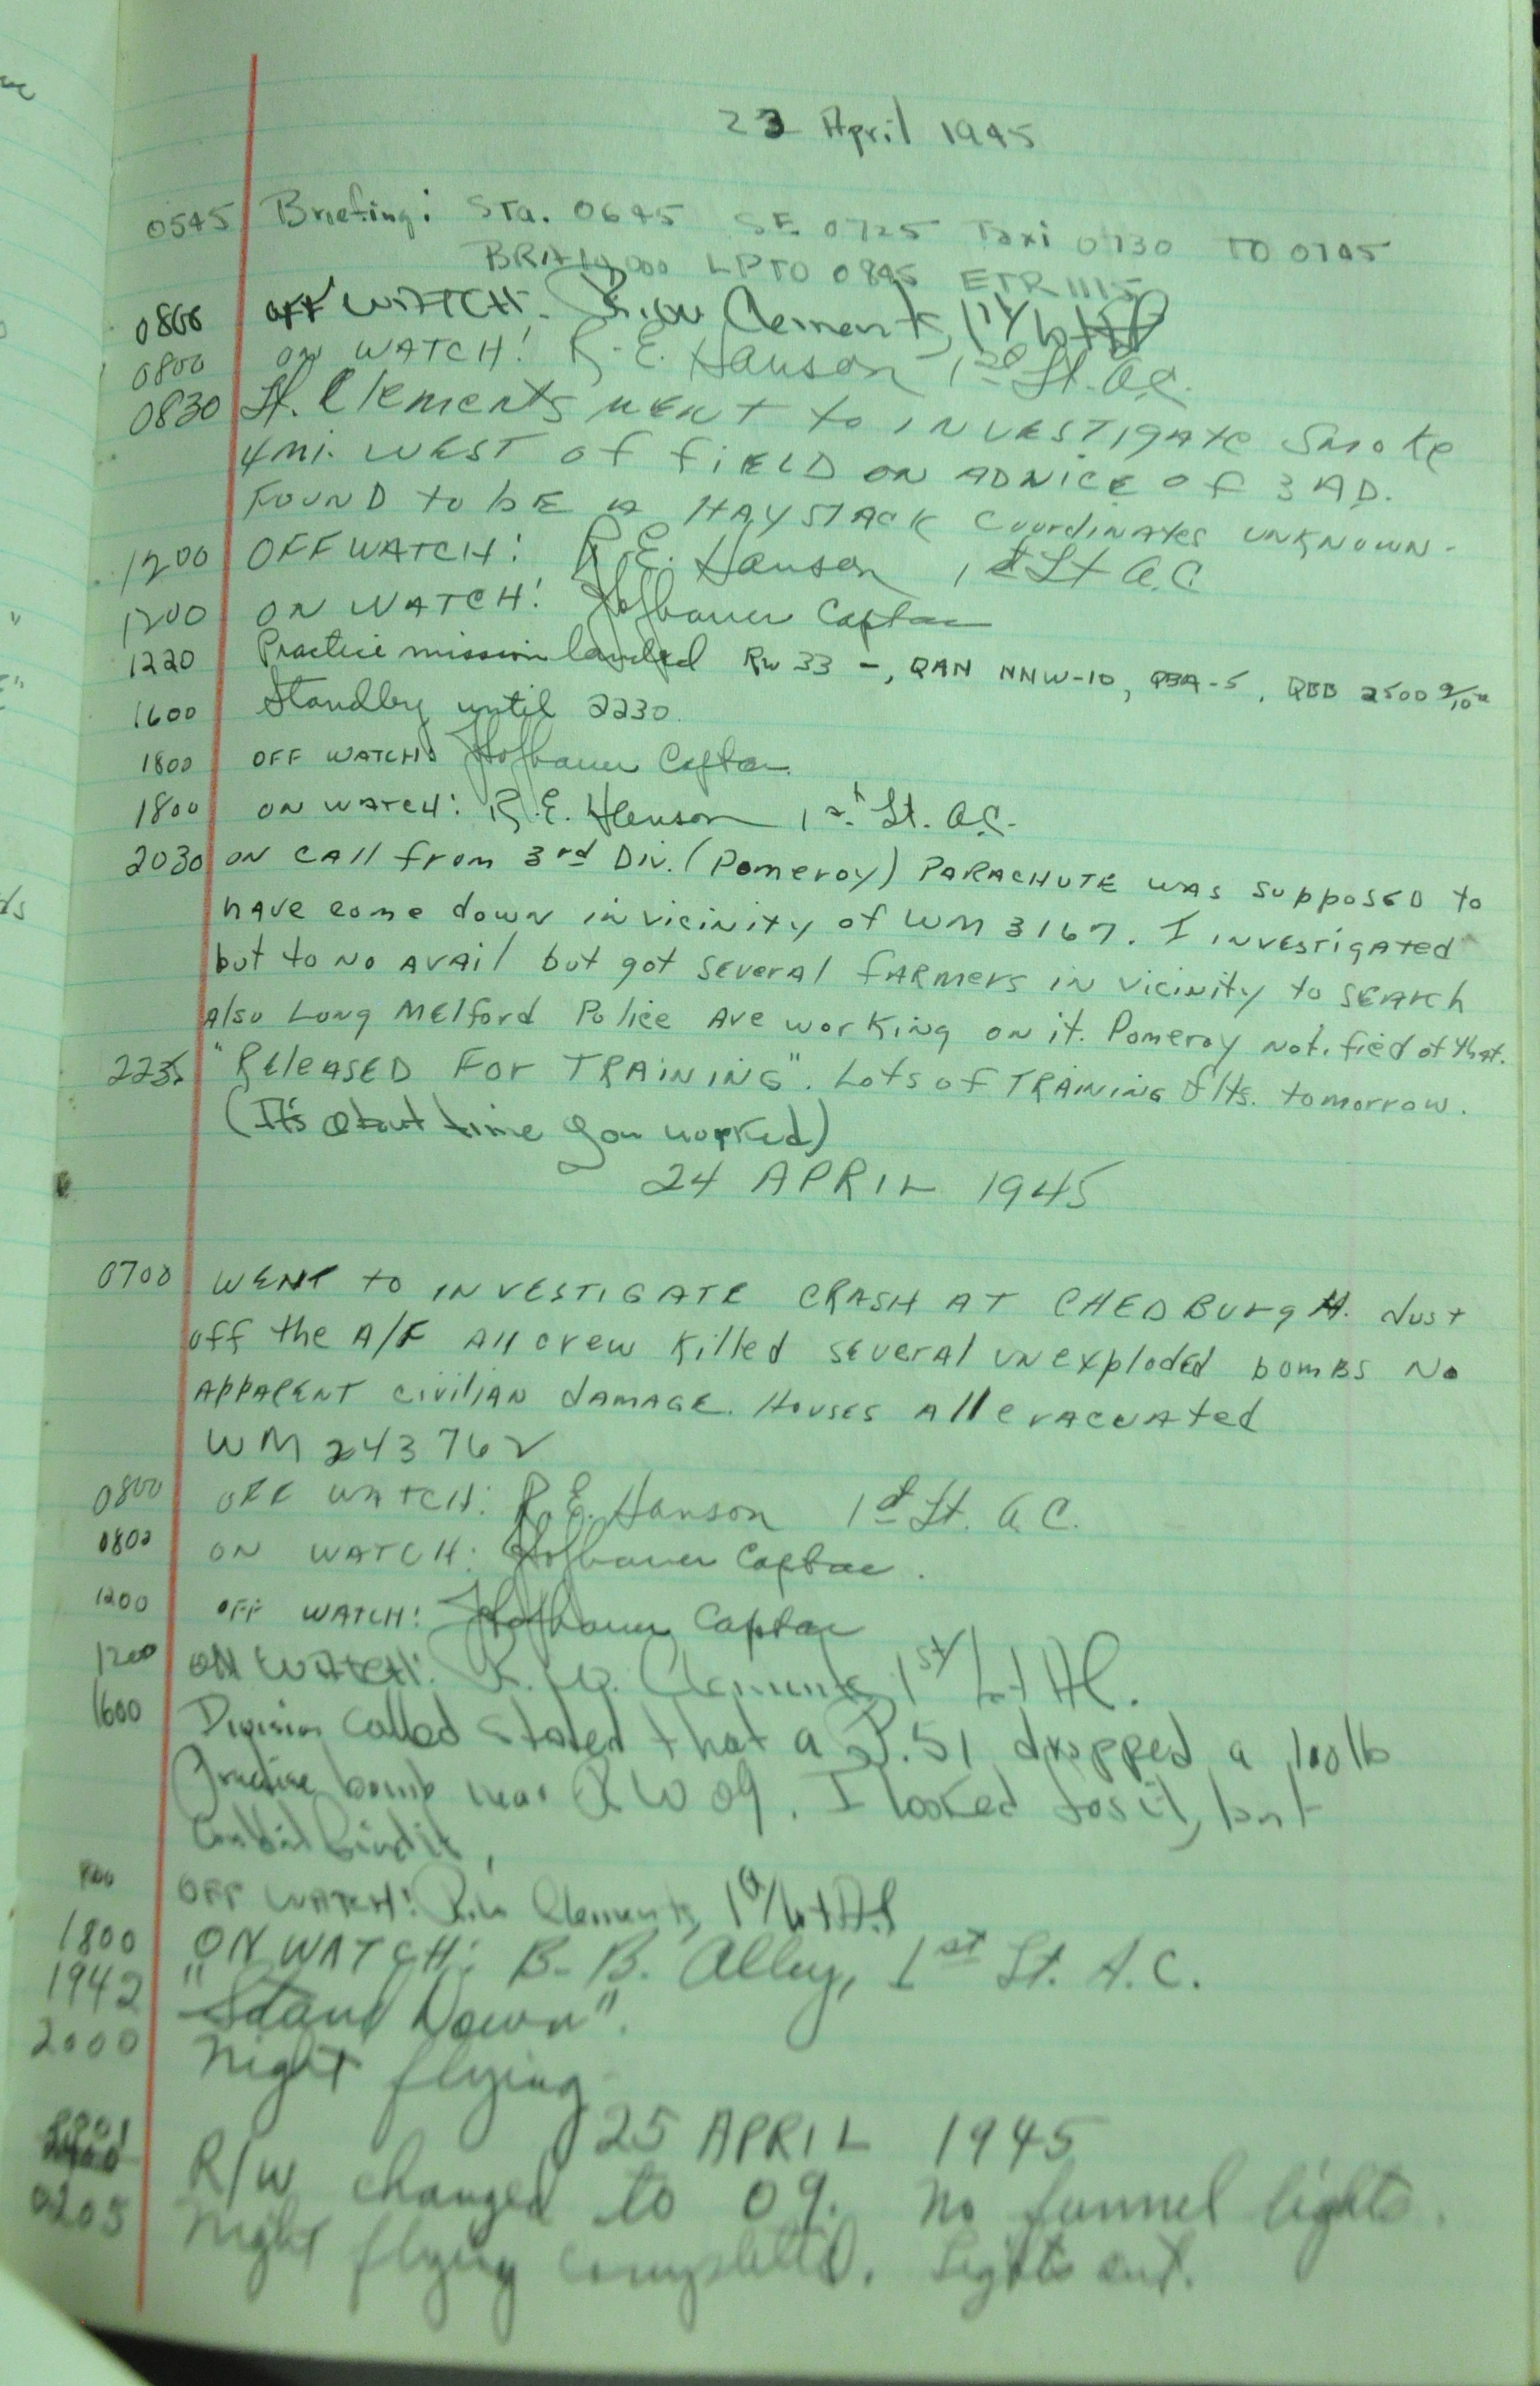 23 April 1945
0545 Briefing: Sta. 0645 SE 0725 Taxi 0730 TO 0745
BRIT 14,000 LPTO 0845 ETR 1115
0800 OFF WATCH: R.W. Clements, 1st Lt AC
0800 ON WATCH! R.E. Hanson 1st Lt. A.C.
0830 Lt. Clements WENT to INVESTIGATE Smoke
4 mi. WEST of fIELD ON ADVICE of 3 AD.
FOUND to bE a HAYSTACK Coordinates UNKNOWN.
1200 OFF WATCH: R.E. Hanson 1st Lt A.C
1200 ON WATCH! Hofbauer Capt ac
1220 Practice mission landed RW 33 -, QAN NNW-10, QBA-5, QBB 2500 9/10
1600 Standby until 2230.
1800 OFF WATCH: Hofbauer Capt ac
1800 ON WATCH: R.E. Hanson 1st. Lt. A.C.
2030 ON CAll from 3rd Div. (Pomeroy) PARACHUTE was supposED to
have come down in vicinity of WM 3167. I investigated
but to no AVAil but got SEVERAl fARmERS in vicinity to SEARch
Also Long Melford Police Are working on it. Pomeroy notified of that.
2235 "RElEASED FOR TRAiNiNG". Lots of TRAiNiNG flts. tomorrow.
(It's about time you worked)
24 APRIL 1945
0700 WENT to INVESTIGATE CRASH AT CHEDBURgH. Just
off the A/F All crew killed SEVERAl UNexploded bomBS No
APPARENT civiliAN damAGE. HOUSES All evacuated
WM 243762
0800 OFF WATCH: R.E. Hanson 1st Lt. A.C.
0800 ON WATCH: Hofbauer Capt ac.
1200 OFF WATCH! Hofbauer Capt ac
1200 ON WATCH: R.W. Clements 1st/Lt AC.
1600 Division called stated that a P.51 dropped a 100 lb
Practice bomb near RW 09. I looked for it, but
find it.
OFF WATCH! R.W. Clements, 1st/Lt AC
1800 ON WATCH: B.B. Alley, 1st Lt. A.C.
1942 "Stand Down".
2000 Night flying
25 APRIL 1945
R/W changed to 09. No funnel lights.
0205 Night flying completed. Lights out.